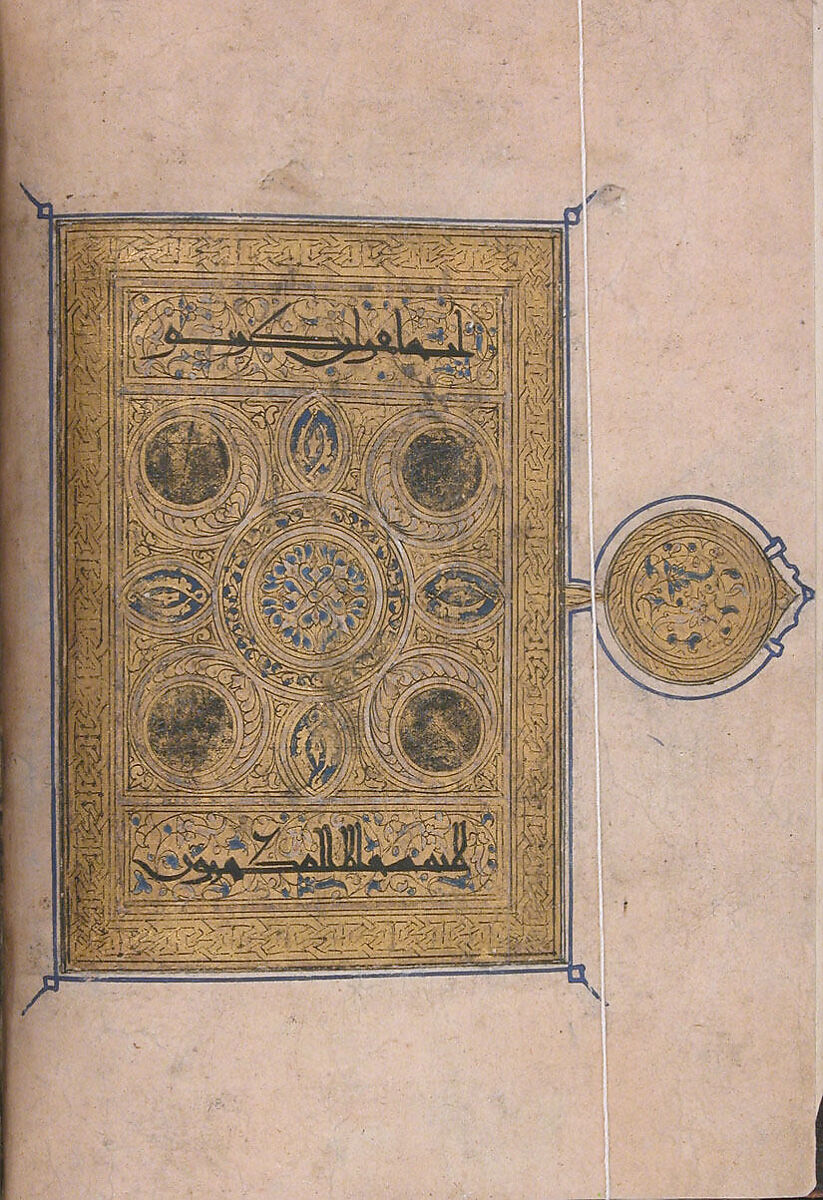 انه لقران كريم
لا يمسه الا المطهرون